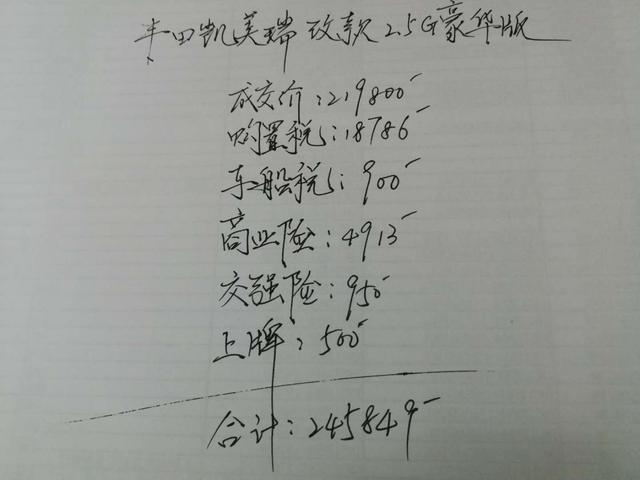 丰田凯美瑞 改款 2.5G豪华版
成交价:219800-
购置税:18786-
车船税:900-
商业险:4913-
交强险:950-
上牌:500-
合计:245849-